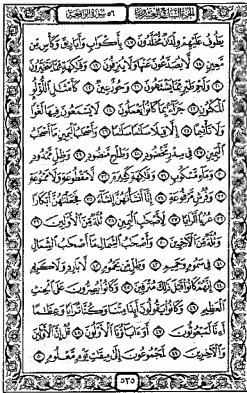 الجزء السابع والعشرون ٥٦ سورة الواقعة
يَطُوفُ عَلَيْهِمْ وِلْدَانٌ مُّخَلَّدُونَ ١٧ بِأَكْوَابٍ وَأَبَارِيقَ وَكَأْسٍ مِّن
مَّعِينٍ ١٨ لَّا يُصَدَّعُونَ عَنْهَا وَلَا يُنزِفُونَ ١٩ وَفَاكِهَةٍ مِّمَّا يَتَخَيَّرُونَ
٢٠ وَلَحْمِ طَيْرٍ مِّمَّا يَشْتَهُونَ ٢١ وَحُورٌ عِينٌ ٢٢ كَأَمْثَالِ اللُّؤْلُؤِ
الْمَكْنُونِ ٢٣ جَزَاءً بِمَا كَانُوا يَعْمَلُونَ ٢٤ لَا يَسْمَعُونَ فِيهَا لَغْوًا
وَلَا تَأْثِيمًا ٢٥ إِلَّا قِيلًا سَلَامًا سَلَامًا ٢٦ وَأَصْحَابُ الْيَمِينِ مَا أَصْحَابُ
الْيَمِينِ ٢٧ فِي سِدْرٍ مَّخْضُودٍ ٢٨ وَطَلْحٍ مَّنضُودٍ ٢٩ وَظِلٍّ مَّمْدُودٍ
٣٠ وَمَاءٍ مَّسْكُوبٍ ٣١ وَفَاكِهَةٍ كَثِيرَةٍ ٣٢ لَّا مَقْطُوعَةٍ وَلَا مَمْنُوعَةٍ
٣٣ وَفُرُشٍ مَّرْفُوعَةٍ ٣٤ إِنَّا أَنشَأْنَاهُنَّ إِنشَاءً ٣٥ فَجَعَلْنَاهُنَّ أَبْكَارًا
٣٦ عُرُبًا أَتْرَابًا ٣٧ لِّأَصْحَابِ الْيَمِينِ ٣٨ ثُلَّةٌ مِّنَ الْأَوَّلِينَ ٣٩
وَثُلَّةٌ مِّنَ الْآخِرِينَ ٤٠ وَأَصْحَابُ الشِّمَالِ مَا أَصْحَابُ الشِّمَالِ
٤١ فِي سَمُومٍ وَحَمِيمٍ ٤٢ وَظِلٍّ مِّن يَحْمُومٍ ٤٣ لَّا بَارِدٍ وَلَا كَرِيمٍ
٤٤ إِنَّهُمْ كَانُوا قَبْلَ ذَٰلِكَ مُتْرَفِينَ ٤٥ وَكَانُوا يُصِرُّونَ عَلَى الْحِنثِ
الْعَظِيمِ ٤٦ وَكَانُوا يَقُولُونَ أَئِذَا مِتْنَا وَكُنَّا تُرَابًا وَعِظَامًا
أَءِنَّا لَمَبْعُوثُونَ ٤٧ أَوَآبَاؤُنَا الْأَوَّلُونَ ٤٨ قُلْ إِنَّ الْأَوَّلِينَ
وَالْآخِرِينَ ٤٩ لَمَجْمُوعُونَ إِلَىٰ مِيقَاتِ يَوْمٍ مَّعْلُومٍ ٥٠
٥٣٥